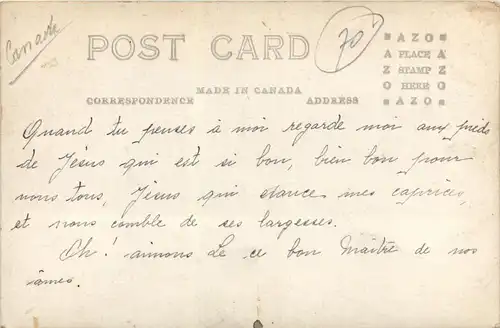 Canada
70
POST CARD
AZO
A PLACE A
Z STAMP Z
O HERE O
AZO
MADE IN CANADA
CORRESPONDENCE ADDRESS
Quand tu penses à moi regarde moi aux pieds
de Jésus qui est si bon, bien bon pour
nous tous, Jésus qui mes caprices,
et nous comble de ses largesses.
Oh! aimons Le ce bon Maître de nos
âmes.